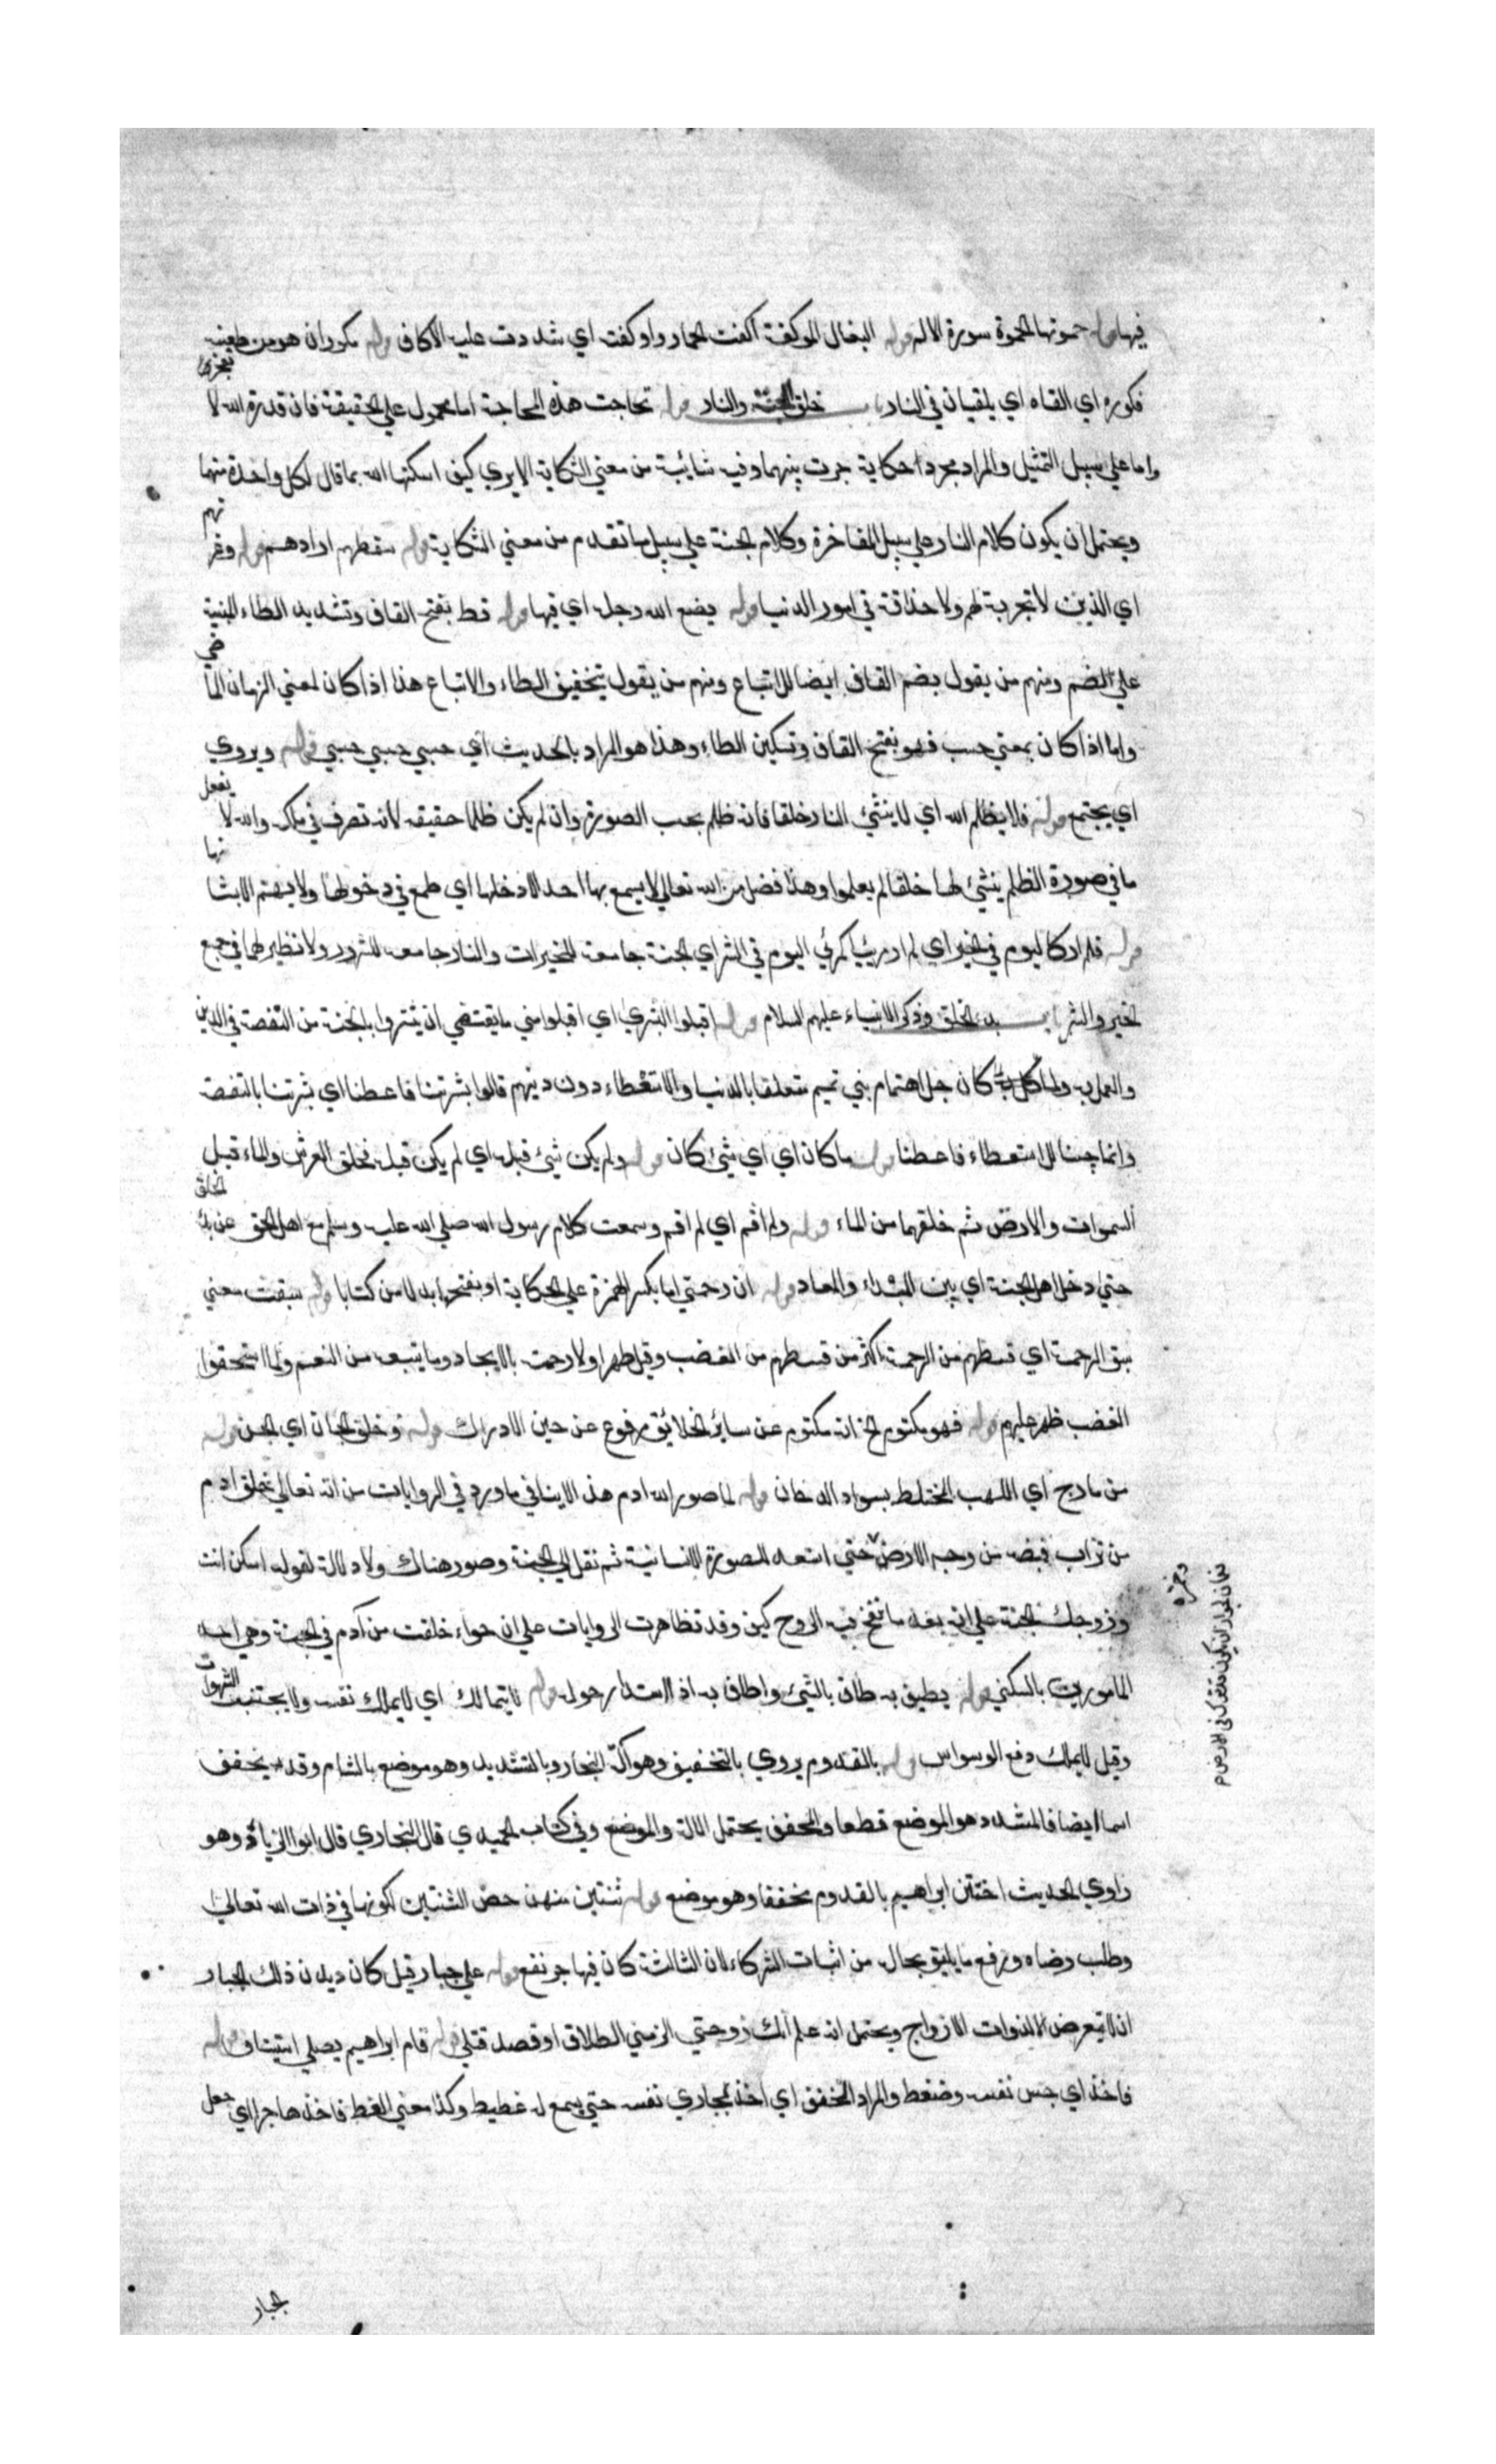 فيها قوله حموتها الحموة سورة الالم قوله البغال الموكفة اكفت الحمار واوكفت اي شددت عليه الاكاف قوله مكوران هو من طعنه
فكوره اي القاه اي يلقيان في النار باب خلق الجنة والنار قوله تحاجت هذه المحاجة اما محمول علي الحقيقة فان قدرة الله لا
تعجز
واما علي سبيل التمثيل والمراد مجرد حكاية جرت بينهما وفيه شائبة من معني الشكاية الا يري كيف اسكتها الله بما قال لكل واحدة منهما
ويحتمل ان يكون كلام النار علي سبيل المفاخرة وكلام الجنة علي سبيل ما تقدم من معني الشكاية قوله سقطهم اراذلهم قوله وغر
تهم
اي الذين لا تجربة لهم ولا حذاقة في امور الدنيا قوله يضع الله رجله اي فيها قوله قط بفتح القاف وتشديد الطاء المبنية
علي الضم ومنهم من يقول بضم القاف ايضا للاتباع ومنهم من يقول بتخفيف الطاء والاتباع هذا اذا كان لمعني الزمان الما
ضي
واما اذا كان بمعني حسب فهو بفتح القاف وتسكين الطاء وهذا هو المراد بالحديث اي حسبي حسبي حسبي قوله ويزوي
اي يجتمع قوله فلا يظلم الله اي لا ينشئ النار خلقا فانه ظلم بحسب الصورة وان لم يكن ظلما حقيقة لانه تصرف في ملكه والله لا
يفعل
ما في صورة الظلم ينشئ لها خلقا لم يعلموا وهذا فضل من الله تعالي لا يسمع بها احد الا دخلها اي طمع في دخولها ولا يهتم الا بشا
نها
قوله فلم ار كاليوم في الخير اي لم ار مرئيا كمرئي اليوم في الشر اي الجنة جامعة للخيرات والنار جامعة للشرور ولا نظير لهما في جمع
الخير والشر باب بدء الخلق وذكر الانبياء عليهم السلام قوله اقبلوا البشري اي اقبلوا مني ما يقتضي ان تبشروا بالجنة من التفقه في الدين
والعمل به ولما كان جل اهتمام بني تميم متعلقا بالدنيا والاستعطاء دون دينهم قالوا بشرتنا فاعطنا اي بشرتنا بالتفقه
وانما جئنا للاستعطاء فاعطنا قوله ما كان اي اي شئ كان قوله ولم يكن شئ قبله اي لم يكن قبله فخلق العرش والماء قبل
السموات والارض ثم خلقهما من الماء قوله ولم اقم اي لم اقم وسمعت كلام رسول الله صلي الله عليه وسلم مع اهل الحق عن بدء
الخلق
حتي دخل اهل الجنة اي بين المبداء والمعاد قوله ان رحمتي اما بكسر الهمزة علي الحكاية او بفتحها بدلا من كتابا قوله سبقت معني
سبق الرحمة اي قسطهم من الرحمة اكثر من قسطهم من الغضب وقيل ظهر اولا رحمته بالايجاد وما يتبعه من النعم ولما استحقوا
الغضب ظهر عليهم قوله فهو مكتوم الخ انه مكتوم عن سائر الخلائق مرفوع عن حين الادراك قوله وخلق الجان اي الجن قوله
من مارج اي اللهب المختلط بسواد الدخان قوله لما صور الله ادم هذا لا ينافي ما ورد في الروايات من انه تعالي خلق ادم
من تراب قبضه من وجه الارض حتي استعد للصورة الانسانية ثم نقل الي الجنة وصور هناك ولا دلالة لقوله اسكن انت
وزوجك الجنة علي انه بعد ما نفخ فيه الروح كيف وقد تظاهرت الروايات علي ان حواء خلقت من آدم في الجنة وهي احد
المامورين بالسكني قوله يطيف به طاف بالشئ واطاف به اذا استدار حوله قوله لا يتمالك اي لا يملك نفسه ولا يجتنب
الشهوات
وقيل لا يملك دفع الوسواس قوله بالقدوم يروي بالتخفيف وهو آلة النجار وبالتشديد وهو موضع بالشام وقد يخفف
اسما ايضا فالمشدد هو الموضع قطعا والمخفف يحتمل الالة والموضع وفي كتاب الحميدي قال البخاري قال ابوا الزناد وهو
راوي الحديث اختتن ابراهيم بالقدوم مخففا وهو موضع قوله ثنتين منهن خص الثنتين لكونها في ذات الله تعالي
وطلب رضاه ورفع ما يليق بحاله من اثبات الشركاء لان الثالثة كان فيها جر نفع قوله علي جبار قيل كان ديدن ذلك الجبار
ان لا يتعرض الا لذوات الازواج ويحتمل انه علم انك زوجتي الزمني الطلاق او قصد قتلي قوله قام ابراهيم يصلي استيناف قوله
فاخذ اي حبس نفسه وضغط والمراد الخنق اي اخذ بمجاري نفسه حتي يسمع له غطيط وكذا معني الغط فاخذ هاجر اي جعل
الجبار